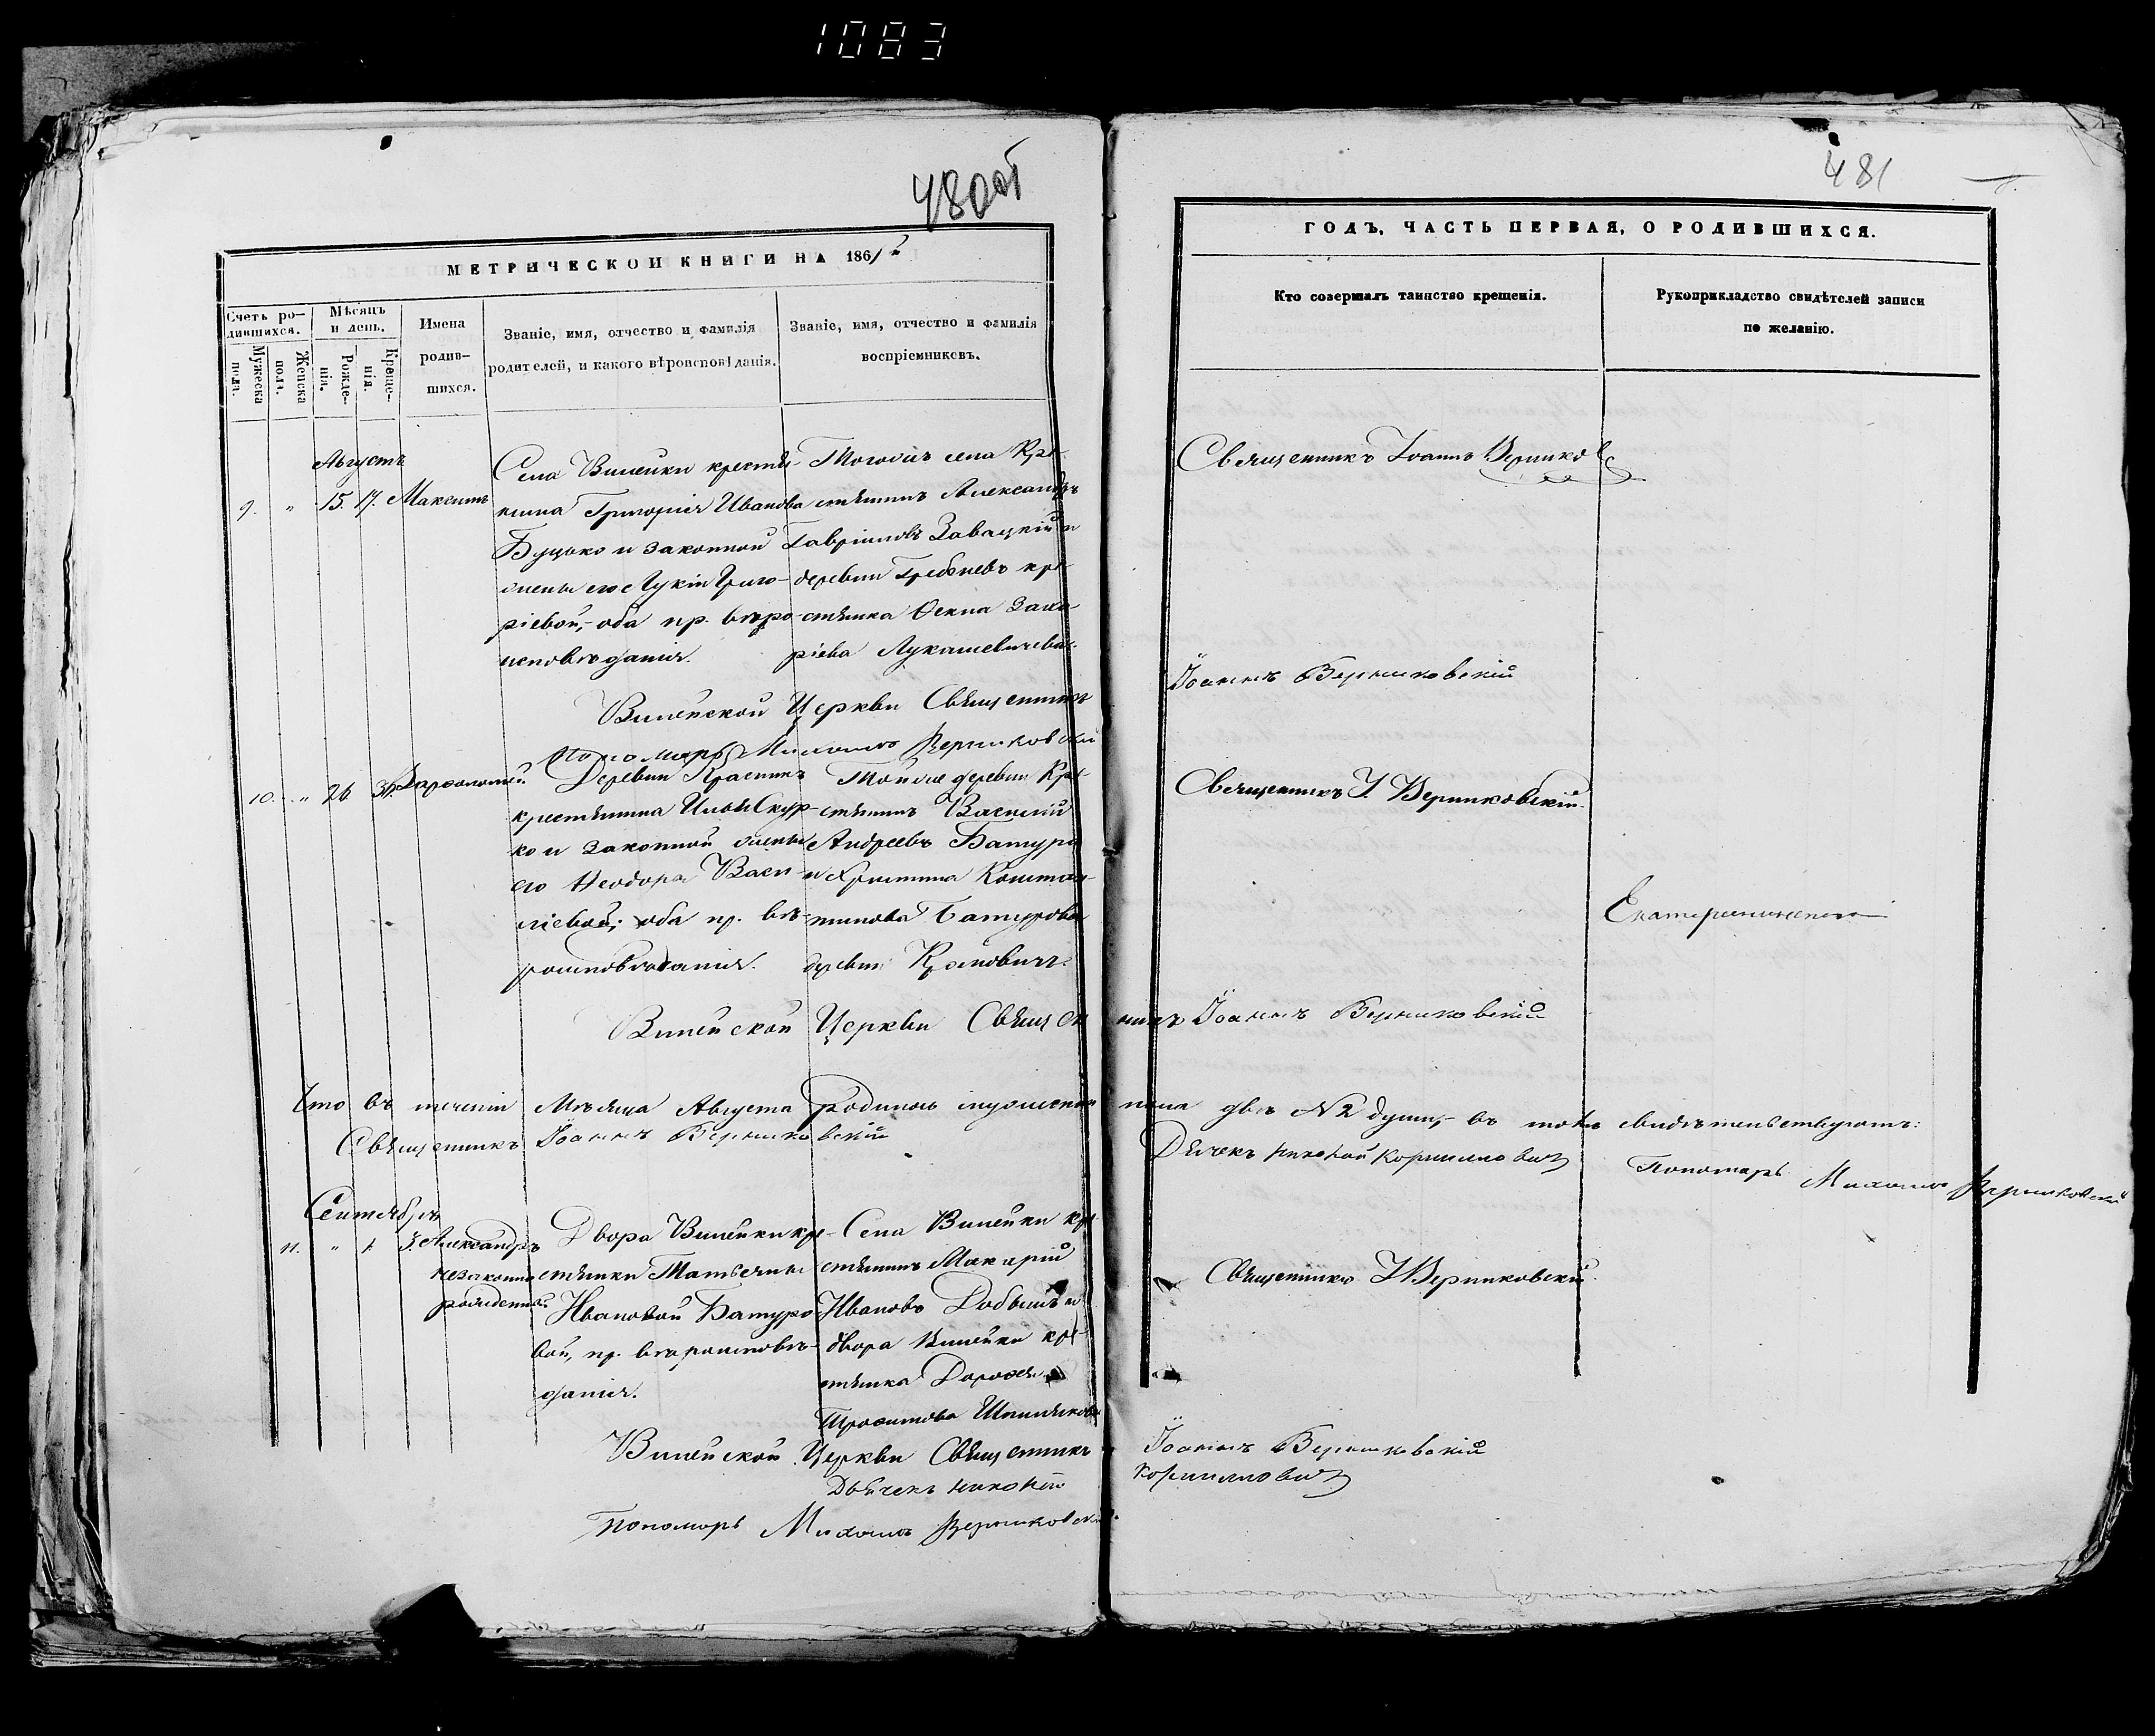 1083
480об
481
МЕТРИЧЕСКОИ КНИГИ НА 1861
ГОДЪ, ЧАСТЬ ПЕРВАЯ, О РОДИВШИХСЯ.
Счетъ ро-
дившихся.
Мужеска
пола.
Женска
пола.
Мѣсяцъ
и день.
Рожде-
нія.
Креще-
нія.
Имена
родив-
шихся.
Званіе, имя, отчество и фамилія
родителей, и какого вѣроисповѣданія.
Званіе, имя, отчество и фамилія
воспріемниковъ.
Кто совершалъ таинство крещенія.
Рукоприкладство свидѣтелей записи
по желанію.
Августъ
9. " 15. 17. Максимъ
Села Вилейки крестья-
нина Григорія Иванова
Буцько и законной
жены его Лукіи Григо-
ріевой, оба пр. вѣро
исповѣданія.
Тогожъ села Кре-
стьянинъ Александръ
Гавріиловъ Завацкій и
деревни Гребеневъ кре-
стьянка Ѳекла Заха-
ріева Лукашевичева.
Священникъ Іоаннъ
Вилейской Церкви Священникъ Іоаннъ Верниковскій
Пономарь Михаилъ Верниковскій
10. " 26 Варѳоломей.
Деревни
крестьянина Ильи Скур-
ко и законной жены
его Ѳеодора Васи-
ліевой; оба пр. вѣ-
роисповѣданія.
Тойже деревни Кре-
стьянинъ Василій
Андреевъ Батура
и Христина Констан-
тинова Батурова
деревни
Священникъ І. Верниковскій.
Вилейской Церкви Священникъ Іоаннъ Верниковскій
Что въ теченіи Мѣсяца Августа родилось мужескаго пола двѣ № 2 души, въ томъ свидѣтельствуютъ:
Священникъ Іоаннъ Верниковскій Дьячекъ Корниловичъ Пономарь Михаилъ Верниковскій
Сентябрь
11. " 1. 3. Александръ
незаконно
рожденный
Двора Вилейки кре-
стьянки Татьяны
Ивановой Батуро-
вой, пр. вѣроисповѣ-
данія.
Села Вилейки кре-
стьянинъ Макарій
Ивановъ и
двора Вилейки кре-
стьянка
Священникъ І Верниковскій.
Вилейской Церкви Священникъ Іоаннъ Верниковскій
Дьячекъ Корниловичъ
Пономарь Михаилъ Верниковскій